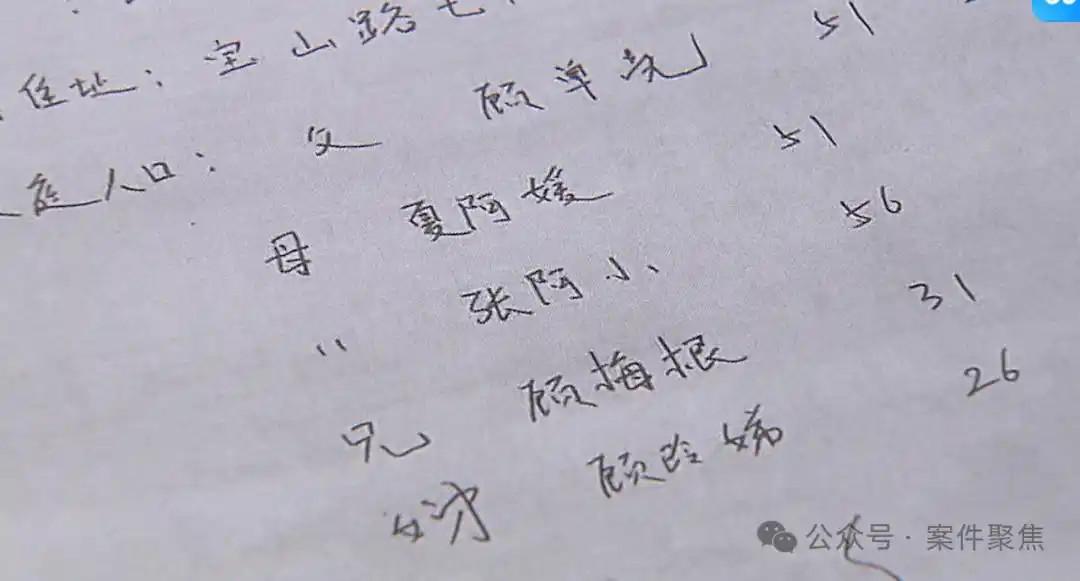 住址：宝山路七
庭人口：父 顾单况 51
母 夏阿媛 51
〃 张阿小 56
兄 顾梅根 31
顾玲娣 26
公众号·案件聚焦